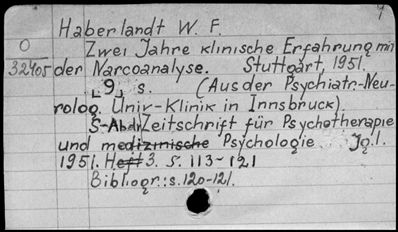 Haberlandt W. F.
Zwei Jahre klinische Erfahrung mit
der Narcoanalyse. Stuttgart, 1951.
9 s. (Aus der Psychiatr.-Neu-
rolog. Univ-Klinik in Innsbruck).
S-Abdr Zeitschrift für Psychotherapie
und medizinische Psychologie Jg. 1.
1951. Heft 3. S. 113-121
Bibliogr.: s. 120-121.
0
32405